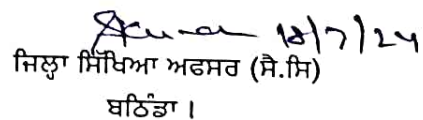 18/7/24
ਜਿਲ੍ਹਾ ਸਿੱਖਿਆ ਅਫਸਰ (ਸੈ.ਸਿ)
ਬਠਿੰਡਾ ।